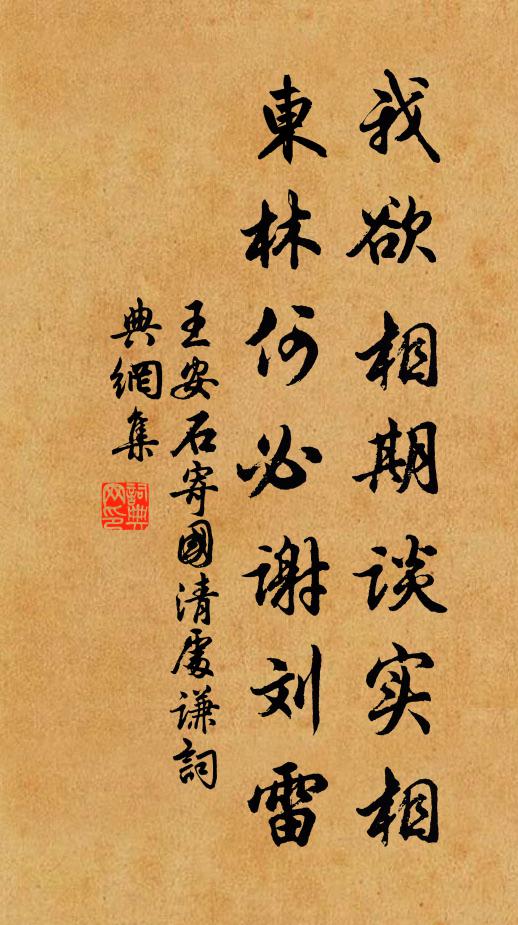 我欲相期谈实相
東林何必谢刘雷
王安石寄國清處谦詞
典網集
詞典网印